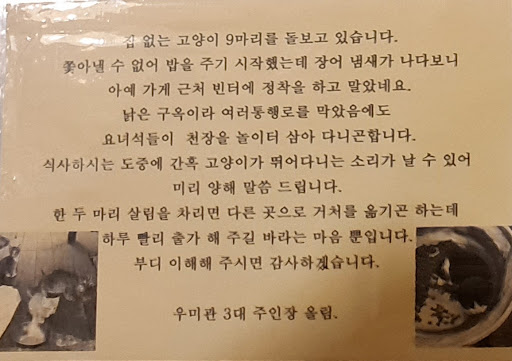 집 없는 고양이 9마리를 돌보고 있습니다.
쫓아낼 수 없어 밥을 주기 시작했는데 장어 냄새가 나다보니
아예 가게 근처 빈터에 정착을 하고 말았네요.
낡은 구옥이라 여러통행로를 막았음에도
요녀석들이 천장을 놀이터 삼아 다니곤합니다.
식사하시는 도중에 간혹 고양이가 뛰어다니는 소리가 날 수 있어
미리 양해 말씀 드립니다.
한 두 마리 살림을 차리면 다른 곳으로 거처를 옮기곤 하는데
하루 빨리 출가 해 주길 바라는 마음 뿐입니다.
부디 이해해 주시면 감사하겠습니다.
우미관 3대 주인장 올림.